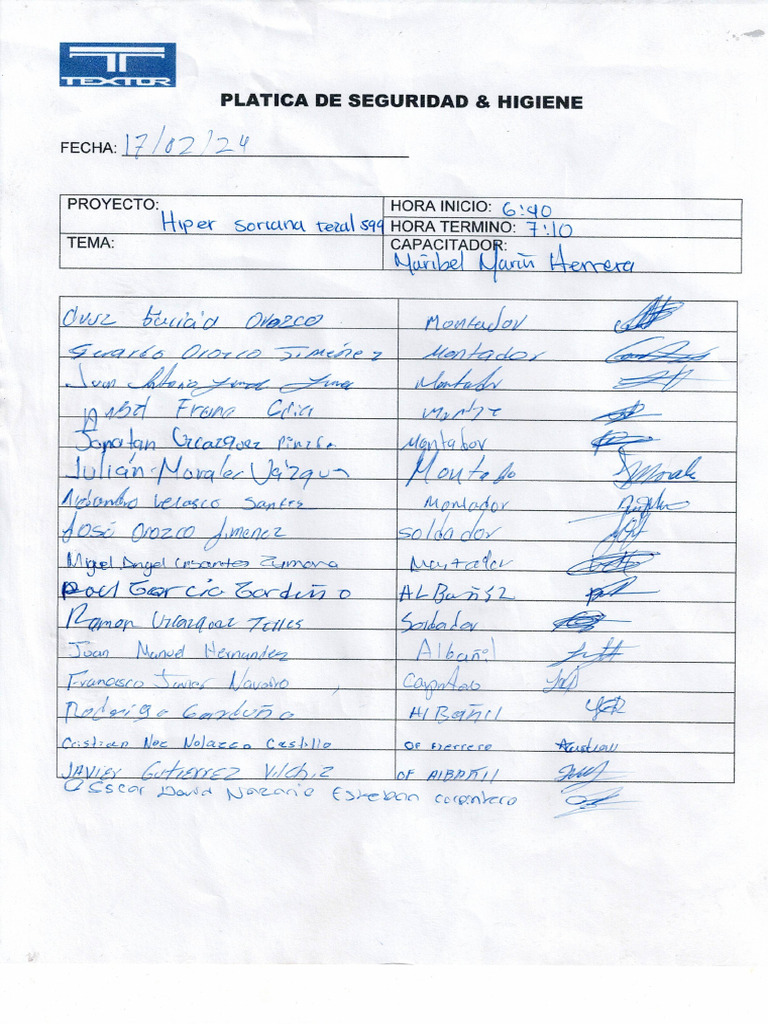 TEXTOR
PLATICA DE SEGURIDAD & HIGIENE
FECHA: 17/02/24
PROYECTO: Hiper soriana tezal 599
HORA INICIO: 6:40
HORA TERMINO: 7:10
TEMA:
CAPACITADOR: Maribel Marín Herrera
Cruz García Orozco Montador
Gerardo Orozco Jiménez Montador
Juan Antonio Montador
Frana
Jonatan Velazquez Montador
Julián Morales Vázquez Montado
Alejandro Velasco Santés Montador
José Orozco Jimenez Soldador
Miguel Angel Cervantes Zamora Montador
Poul García Garduño ALBAÑIL
Ramon Velazquez Telles Soldador
Juan Manuel Hernandez Albañil
Francisco Javier Navarro
Rodrigo Garduño AlBañil
Cristian Noe Nolazco Castillo OF Herrero
JAVIER GUTIERREZ VILCHIZ OF AlBAÑIl
Oscar David Nazario Esteban carpintero